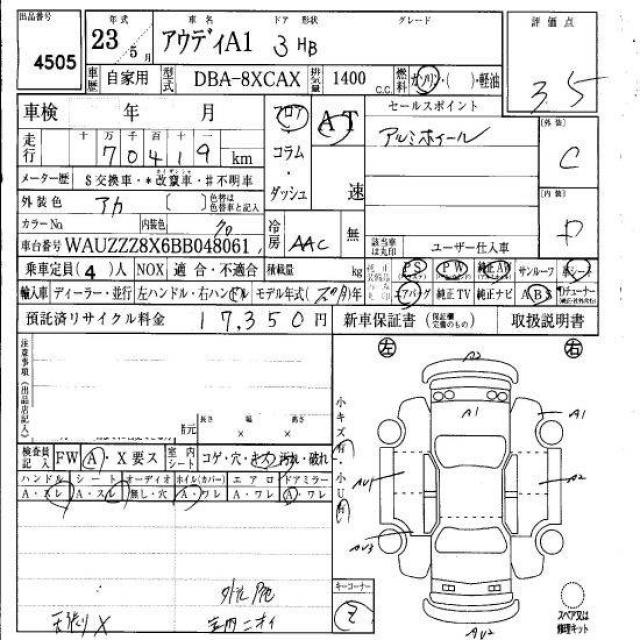 出品番号 年式 車名 ドア形状 グレード 評価点
4505 23年5月 アウディA1 3 HB 3.5
車歴 自家用 型式 DBA-8XCAX 排気量 1400 c.c. 燃料 ガソリン・( )・軽油
車検 年 月 フロア AT セールスポイント [外装]
走行 十万千百十一 70419 km コラム アルミホイール C
メーター歴 $交換車・*改竄車・#不明車 ・ダッシュ 速 [内装]
外装色 アカ [ ] 色替は色替車と記入 D
カラーNo. 内装色 クロ 冷房 AAC 無
車台番号 WAUZZZ8X6BB048061 該当車は丸印 ユーザー仕入車
乗車定員(4)人 NOX 適合・不適合 積載量 kg PS PW 純正AW サンルーフ 革シート
輸入車 ディーラー・並行 左ハンドル・右ハンドル モデル年式( )年 エアバッグ 純正TV 純正ナビ ABS TVチューナー
預託済リサイクル料金 17,350円 新車保証書(保証継続完備のもの) 取扱説明書
注意事項(出品店記入) 左 右
A2
諸元 長さ 幅 高さ 小キズ有・小U有 A1 A1
× ×
検査員記入 FW A・X要ス 室内シート コゲ・穴・キズ・汚れ・破れ
ハンドル シート オーディオ ホイル(カバー) エアロ ドアミラー AU1 A2
A・スレ A・スレ 無し・穴 A・ワレ A・ワレ A・ワレ
AU3
キーコーナー
天張りX 室内ニオイ 2 スペア又は修理キット
AU2